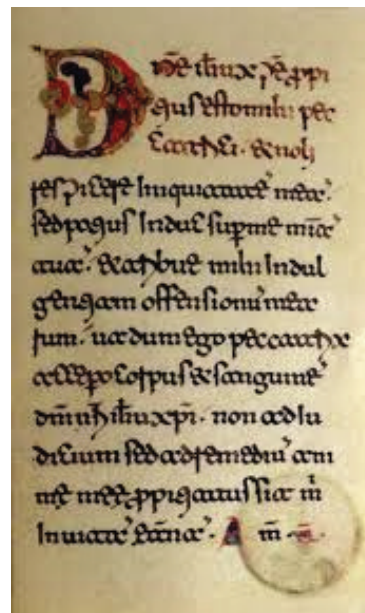 Dñe ihu xp̄e ꝓpi
tius esto mihi pec
catrici. & noli
respicere Iniquitatē meā.
sed potius Indul super me mīā
tuā. & tribue mihi Indul
gentiam offensionū mea
rum. ut dum ego peccatrix
accepero corpus & sanguinē
dn̄i ihu xp̄i. non ad Iu
dicium sed ad remediū ani
mē meē ꝓpitiatus m̄
In uitā et̄nā. A m̄